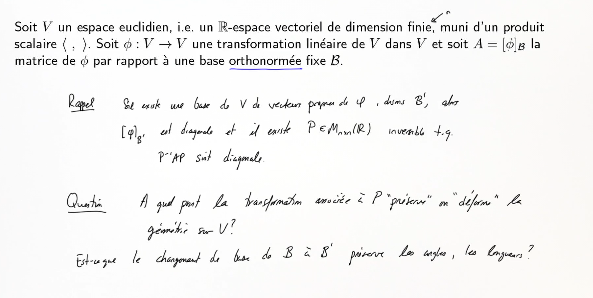 n
Soit V un espace euclidien, i.e. un ℝ-espace vectoriel de dimension finie, muni d'un produit
scalaire ⟨ , ⟩. Soit ϕ : V → V une transformation linéaire de V dans V et soit A = [ϕ]_B la
matrice de ϕ par rapport à une base orthonormée fixe B.
Rappel Si existe une base de V de vecteurs propres de φ, disons B', alors
[φ]_B' est diagonale et il existe P ∈ M_nxn(ℝ) inversible t.q.
P⁻¹AP soit diagonale.
Question A quel point la transformation associée à P "préserve" ou "déforme" la
géométrie sur V?
Est-ce que le changement de base de B à B' préserve les angles, les longueurs?